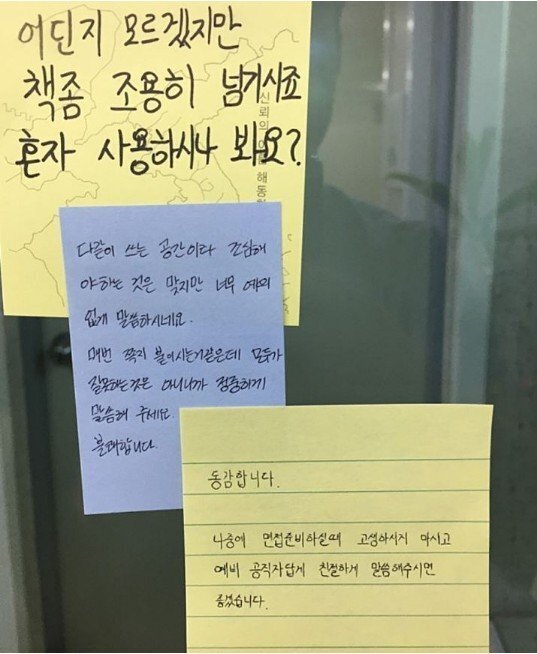 어딘지 모르겠지만
책좀 조용히 넘기시죠
혼자 사용하시나 봐요?
신뢰의 이름 해동
다같이 쓰는 공간이다 조심해
야하는 것은 맞지만 너무 예의
없게 말씀하시네요.
매번 쪽지 붙이시는거같은데 모두가
잘못하는것은 아니니까 정중하게
말씀해 주세요
불쾌합니다.
동감합니다.
나중에 면접준비하실때 고생하시지 마시고
예비 공직자답게 친절하게 말씀해주시면
좋겠습니다.